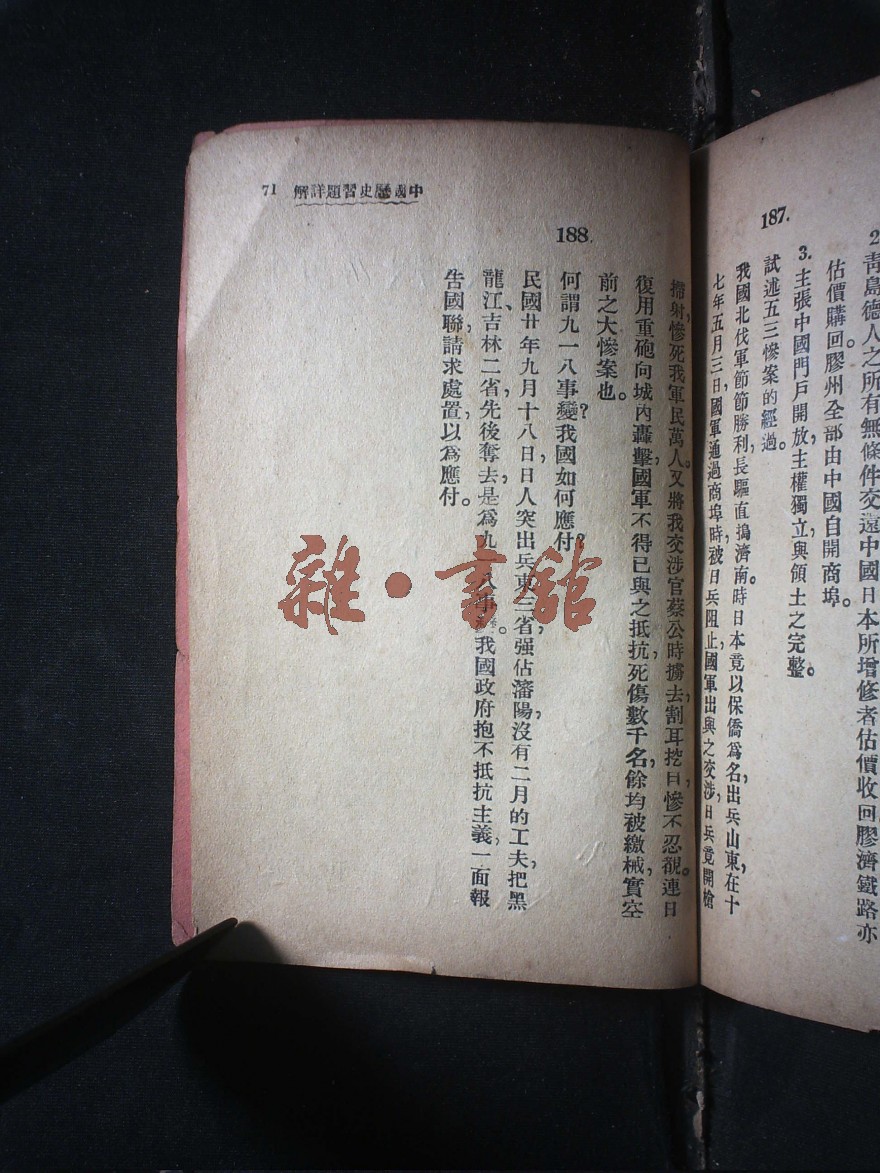 2
青島德人之所有無條件交還中國日本所增修者估價收回膠濟鐵路亦
估價購回。膠州全部由中國自開商埠。
3. 主張中國門戶開放,主權獨立,與領土之完整。
187. 試述五三慘案的經過。
我國北伐軍節節勝利,長驅直搗濟南。時日本竟以保僑爲名,出兵山東,在十
七年五月三日,國軍通過商埠時,被日兵阻止,國軍出與之交涉,日兵竟開槍
掃射,慘死我軍民萬人。又將我交涉官蔡公時擄去,割耳挖目,慘不忍覩。連日
復用重砲向城內轟擊,國軍不得已與之抵抗,死傷數千名,餘均被繳械,實空
前之大慘案也。
188. 何謂九一八事變?我國如何應付?
民國廿年九月十八日,日人突出兵東三省,强佔瀋陽,沒有二月的工夫,把黑
龍江、吉林二省,先後奪去,是爲九一八事。我國政府抱不抵抗主義,一面報
告國聯,請求處置,以爲應付。
中國歷史習題詳解 71
雜·書館